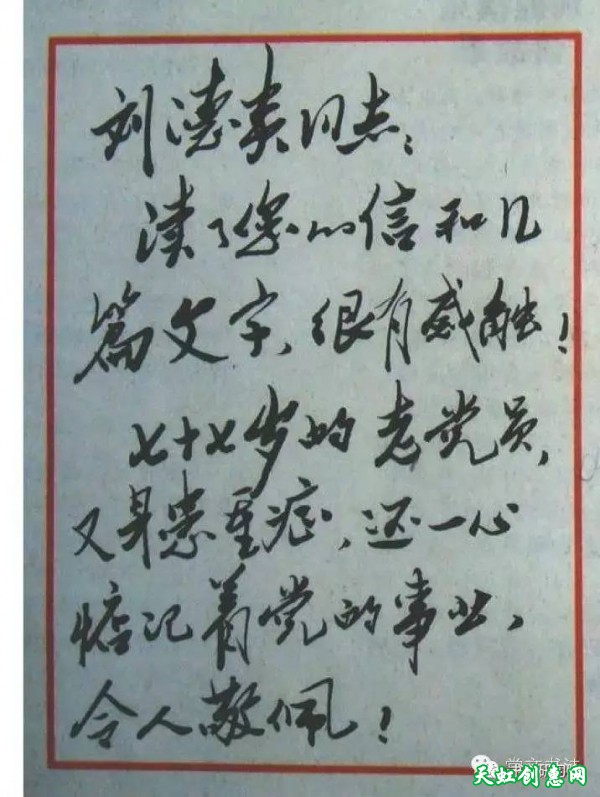 刘德美同志：
读了您的信和几
篇文字、很有感触！
七十七岁的老党员，
又身患重症，还一心
惦记着党的事业，
令人敬佩！
天虹创惠网